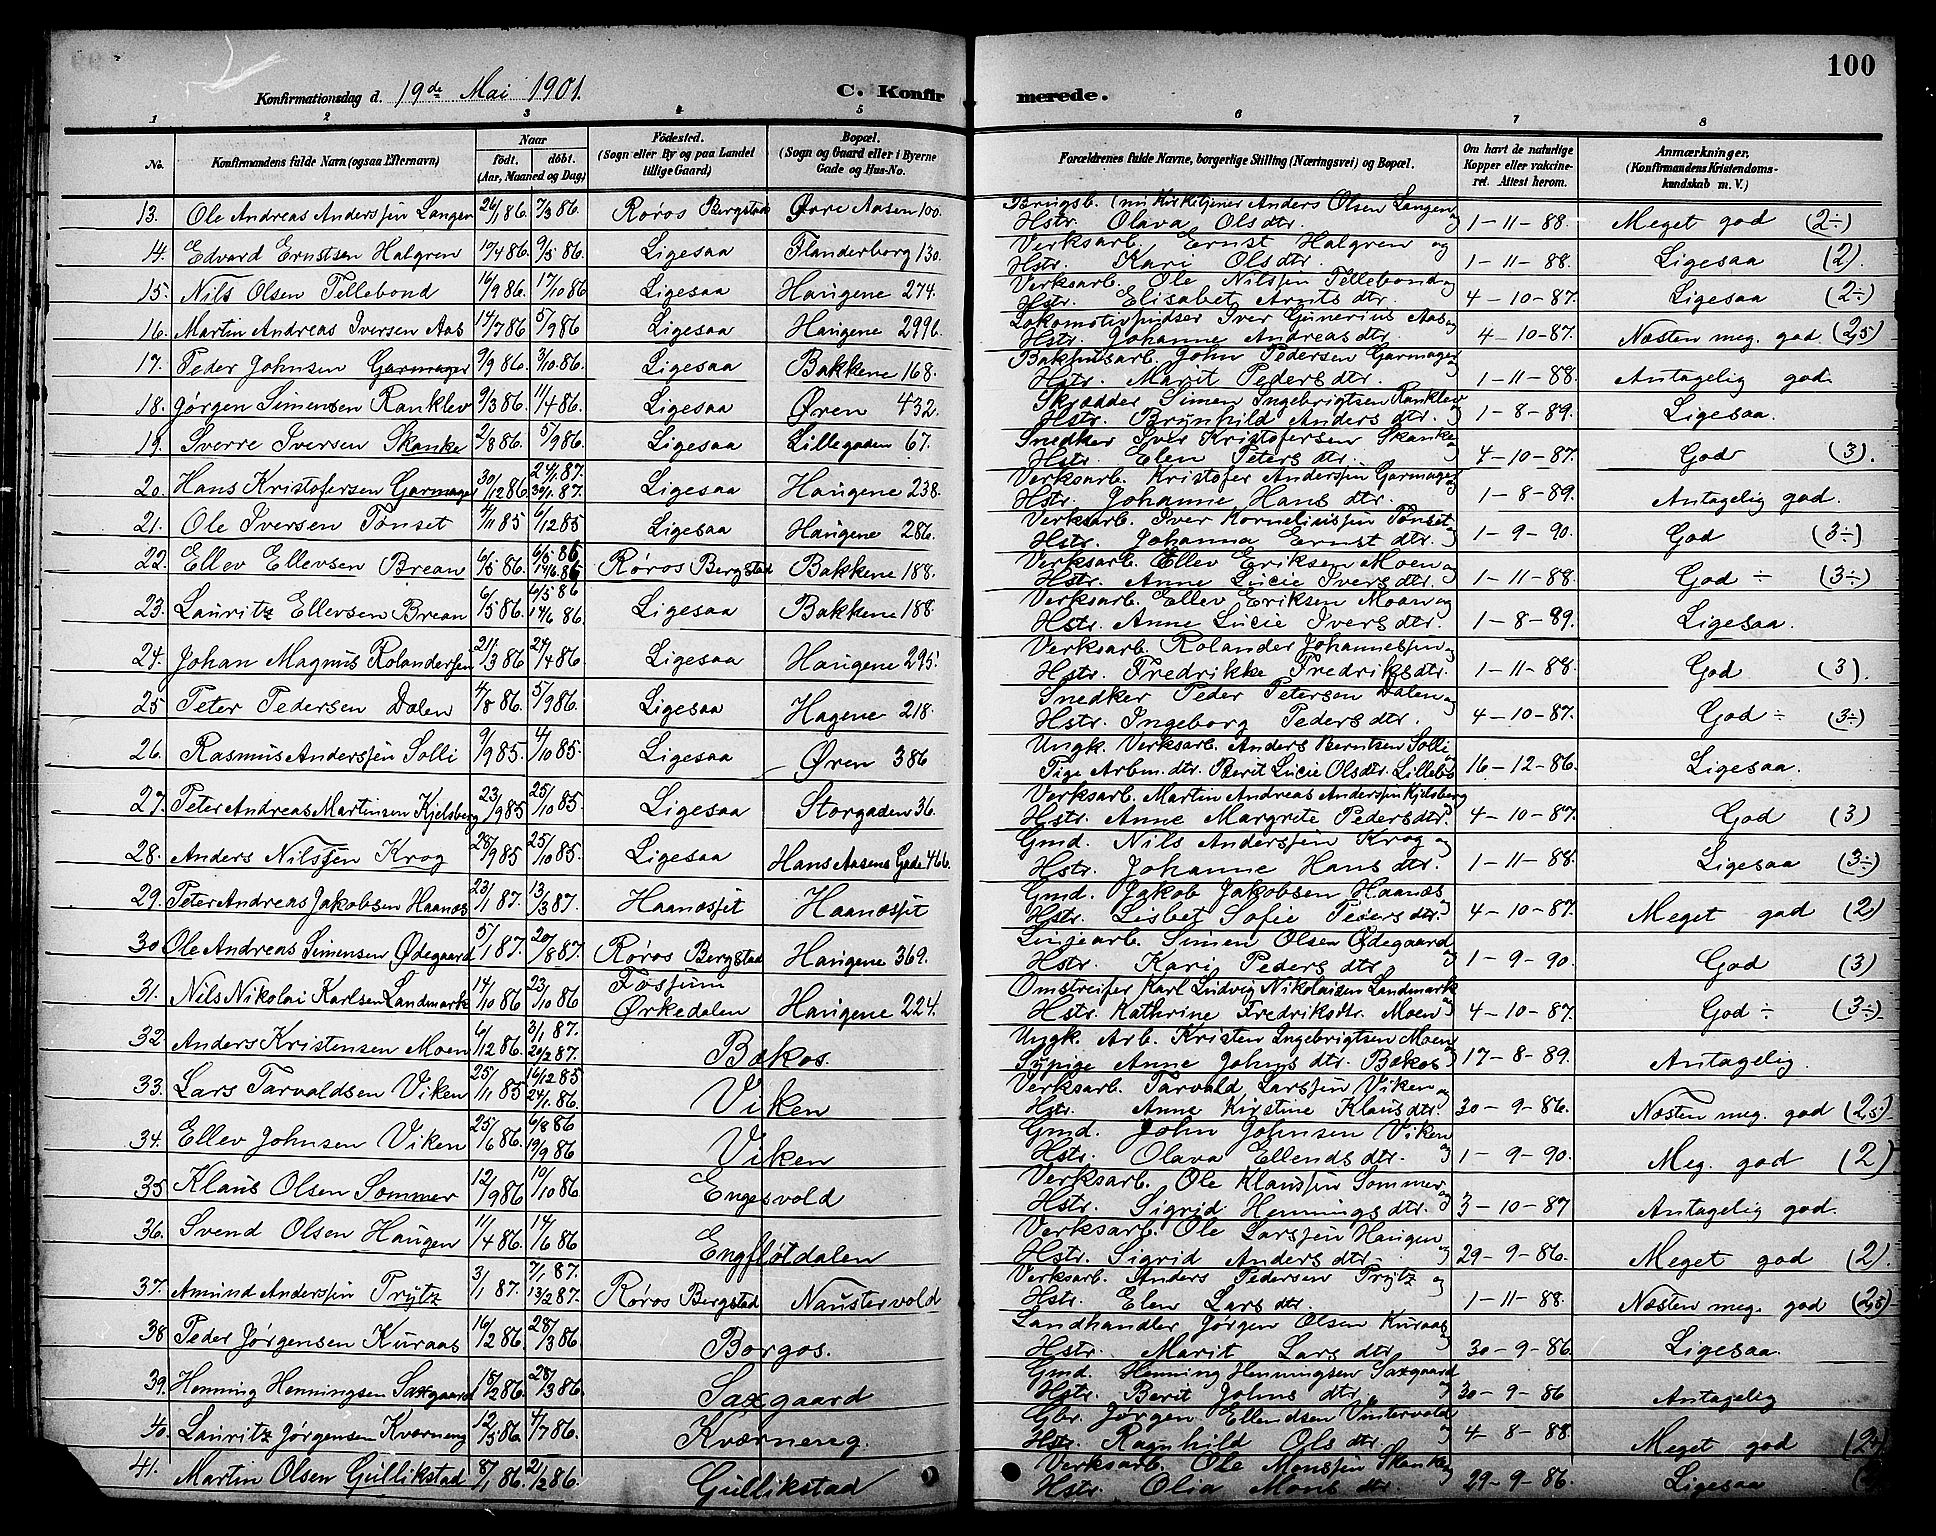 100
Konfirmationsdag d. 19de Mai 1901.
C. Konfirmerede.
1 2 3 4 5 6 7 8
No. Konfirmandens fulde Navn (ogsaa Efternavn) Naar født. døbt. (Aar, Maaned og Dag) Fødested. (Sogn eller By og paa Landet tillige Gaard) Bopæl. (Sogn og Gaard eller i Byerne Gade og Hus-No. Forældrenes fulde Navne, borgerlige Stilling (Næringsvei) og Bopæl. Om havt de naturlige Kopper eller vakcineret. Attest herom. Anmærkninger. (Konfirmandens Kristendomskundskab m. V.)
13. Ole Andreas Anderssen Langen 26/1 86. 7/3 86. Røros Bergstad Øvre Aasen 100. Brugsb. (nu Kirketjener Anders Olsen Langen og
Hstr. Olava Olsdtr. 1-11-88. Meget god (2÷)
14. Edvard Ernstsen Halgren 10/4 86. 9/5 86. Ligesaa Flanderborg 130. Verksarb. Ernst Halgren og
Hstr. Kari Olsdtr. 1-11-88. Ligesaa (2).
15. Nils Olsen Tellebond 16/9 86. 17/10 86 Ligesaa Haugene 274. Verksarb. Ole Nilssen Tellebond og
Hstr. Elisabet Arntsdtr. 4-10-87. Ligesaa (2÷)
16. Martin Andreas Iversen Aas 14/7 86 5/9 86 Ligesaa Haugene 299b. Lokomotivpudser Iver Gunerius Aas og
Hstr. Johanne Andreasdtr. 4-10-87. Næsten meg. god (2,5)
17. Peder Johnsen Garmager 9/9 86. 3/10 86. Ligesaa Bakkene 168. Bakhusarb. John Pedersen Garmager
Hstr. Marit Pedersdtr. 1-11-88. Antagelig god.
18. Jørgen Simensen Ranklev 9/3 86. 11/4 86. Ligesaa Øren 432. Skrædder Simen Ingebrigtsen Ranklev
Hstr. Brynhild Andersdtr. og 1-8-89. Ligesaa.
19. Sverre Iversen Skanke 2/8 86. 5/9 86. Ligesaa Lillegaden 67. Snedker Iver Kristofersen Skanke og
Hstr. Elen Petersdtr. 4-10-87. God (3).
20. Hans Kristofersen Garmager 30/12 86 24/1. 87. 30/1. 87. Ligesaa Haugene 238. Verksarb. Kristofer Anderssen Garmager
Hstr. Johanne Hansdtr. 1-8-89. Antagelig god.
21. Ole Iversen Tønset 4/11 85 6/12 85 Ligesaa Haugene 286. Verksarb. Iver Korneliussen Tønset
Hstr. Johanna Ernstdtr. og 1-9-90. God (3÷)
22. Ellev Ellevsen Brean 6/5 86. 6/5 86 14/6 86 Røros Bergstad Bakkene 188. Verksarb. Ellev Eriksen Moen og
Hstr. Anne Lucie Iversdtr. 1-11-88. God ÷ (3÷)
23. Lauritz Ellevsen Brean 6/5 86. 6/5 86 14/6 86. Ligesaa Bakkene 188. Verksarb. Ellev Eriksen Moen og
Hstr. Anne Lucie Iversdtr. 1-8-89. Ligesaa.
24. Johan Magnus Rolandersen 21/3 86 27/4 86. Ligesaa Haugene 295. Verksarb. Rolander Johannessen og
Hstr. Fredrikke Fredriksdtr. 1-11-88. God (3).
25 Peter Pedersen Dalen 4/8 86. 5/9 86. Ligesaa Hagene 218. Snedker Peder Petersen Dalen og
Hstr. Ingeborg Pedersdtr. 4-10-87. God ÷ (3÷)
26. Rasmus Anderssen Solli 9/9 85. 4/10 85. Ligesaa Øren 386 Ungk. Verksarb. Anders Berntsen Solli
Pige Arbm. dtr. Berit Lucie Olsdtr. Lillebo 16-12-86. Ligesaa.
27. Peter Andreas Martinsen Kjelsberg 23/9 85 25/10 85. Ligesaa Storgaden 36. Verksarb. Martin Andreas Anderssen Kjelsberg
Hstr. Anne Margrete Pedersdtr. 4-10-87. God (3)
28. Anders Nilssen Krog 28/9 85 25/10 85. Ligesaa Hans Aasens Gade 466. Gmd. Nils Anderssen Krog og
Hstr. Johanne Hansdtr. 1-11-88. Ligesaa (3÷)
29. Peter Andreas Jakobsen Haanæs 23/1 87. 13/3 87. Haanæsset Haanæsset Gmd. Jakob Jakobsen Haanæs
Hstr. Lisbet Sofie Pedersdtr. og 4-10-87. Meget god (2)
30 Ole Andreas Simensen Ødegaard 5/1 87. 20/8 87. Røros Bergstad Haugene 369. Linjearb. Simen Olsen Ødegaard
Hstr. Kari Pedersdtr. og 1-9-90. God (3)
31. Nils Nikolai Karlsen Landmark 14/10 86 23/10 86 Fossum Ørkedalen Haugene 224. Omstreifer Karl Ludvig Nikolaisen Landmark
Hstr. Kathrine Fredriksdtr. Moen 4-10-87. God ÷ (3÷)
32 Anders Kristensen Moen 6/12 86. 3/1. 87. 20/2 87. Bækos. Ungk. Arb. Kristen Ingebrigtsen Moen
Sypige Anne Johnsdtr. Bækos 17-8-89. Antagelig.
33. Lars Tarvaldsen Viken 25/11 85 16/12 85 24/1. 86. Viken Verksarb. Tarvald Larssen Viken og
Hstr. Anne Kirstine Klausdtr. 30-9-86. Næsten meg. god (2,5)
34. Ellev Johnsen Viken 25/6 86. 6/8 86 19/9 86 Viken Gmd. John Johnsen Viken
Hstr. Olava Ellendsdtr. og 1-9-90. Meg. god (2)
35. Klaus Olsen Sommer 12/9 86 10/10 86 Engesvold Verksarb. Ole Klaussen Sommer
Hstr. Sigrid Henningsdtr. og 3-10-87 Antagelig god.
36. Svend Olsen Haugen 11/4 86. 14/6 86 Engfløtdalen Verksarb. Ole Larssen Haugen
Hstr. Sigrid Andersdtr. og 29-9-86. Meget god (2)
37. Amund Anderssen Prytz 3/1 87. 7/1. 87. 13/2 87. Røros Bergstad Naustervold Verksarb. Anders Pedersen Prytz og
Hstr. Elen Larsdtr. 1-11-88. Næsten meg. god (2,5)
38 Peder Jørgensen Kuraas 16/2 86. 28/3 86. Borgos. Landhandler Jørgen Olsen Kuraas
Hstr. Marit Larsdtr. og 30-9-86. Ligesaa.
39. Henning Henningsen Saxgaard 18/2 86. 28/3 86. Saxgaard Gmd. Henning Henningsen Saxgaard
Hstr. Berit Johnsdtr. og 30-9-86 Antagelig
40. Lauritz Jørgensen Kværneng 12/5 86. 4/7 86. Kværneng. Gbr. Jørgen Ellendsen Vintervold
Hstr. Ragnhild Olsdtr. og 4-8-88. Meget god
41. Martin Olsen Gullikstad 8/1 86. 21/2 86. Gullikstad Verksarb. Ole Monssen Skanke
Hstr. Olia Monsdtr. 29-9-86. Ligesaa